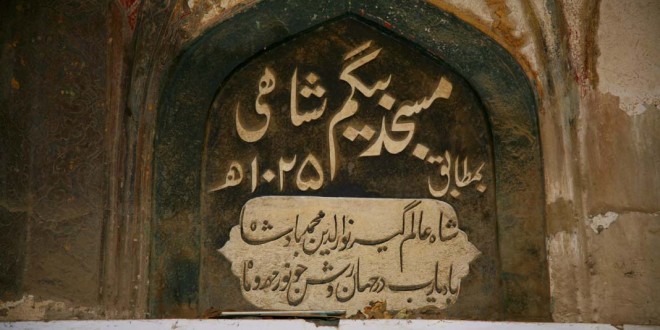 مسجد بیگم شاھی
بمطابق ۱۰۲۵ھ
شاہ عالم گیر نورالدین محمد بادشاہ
باد یارب در جہان روشن چو نور مھر و ماہ